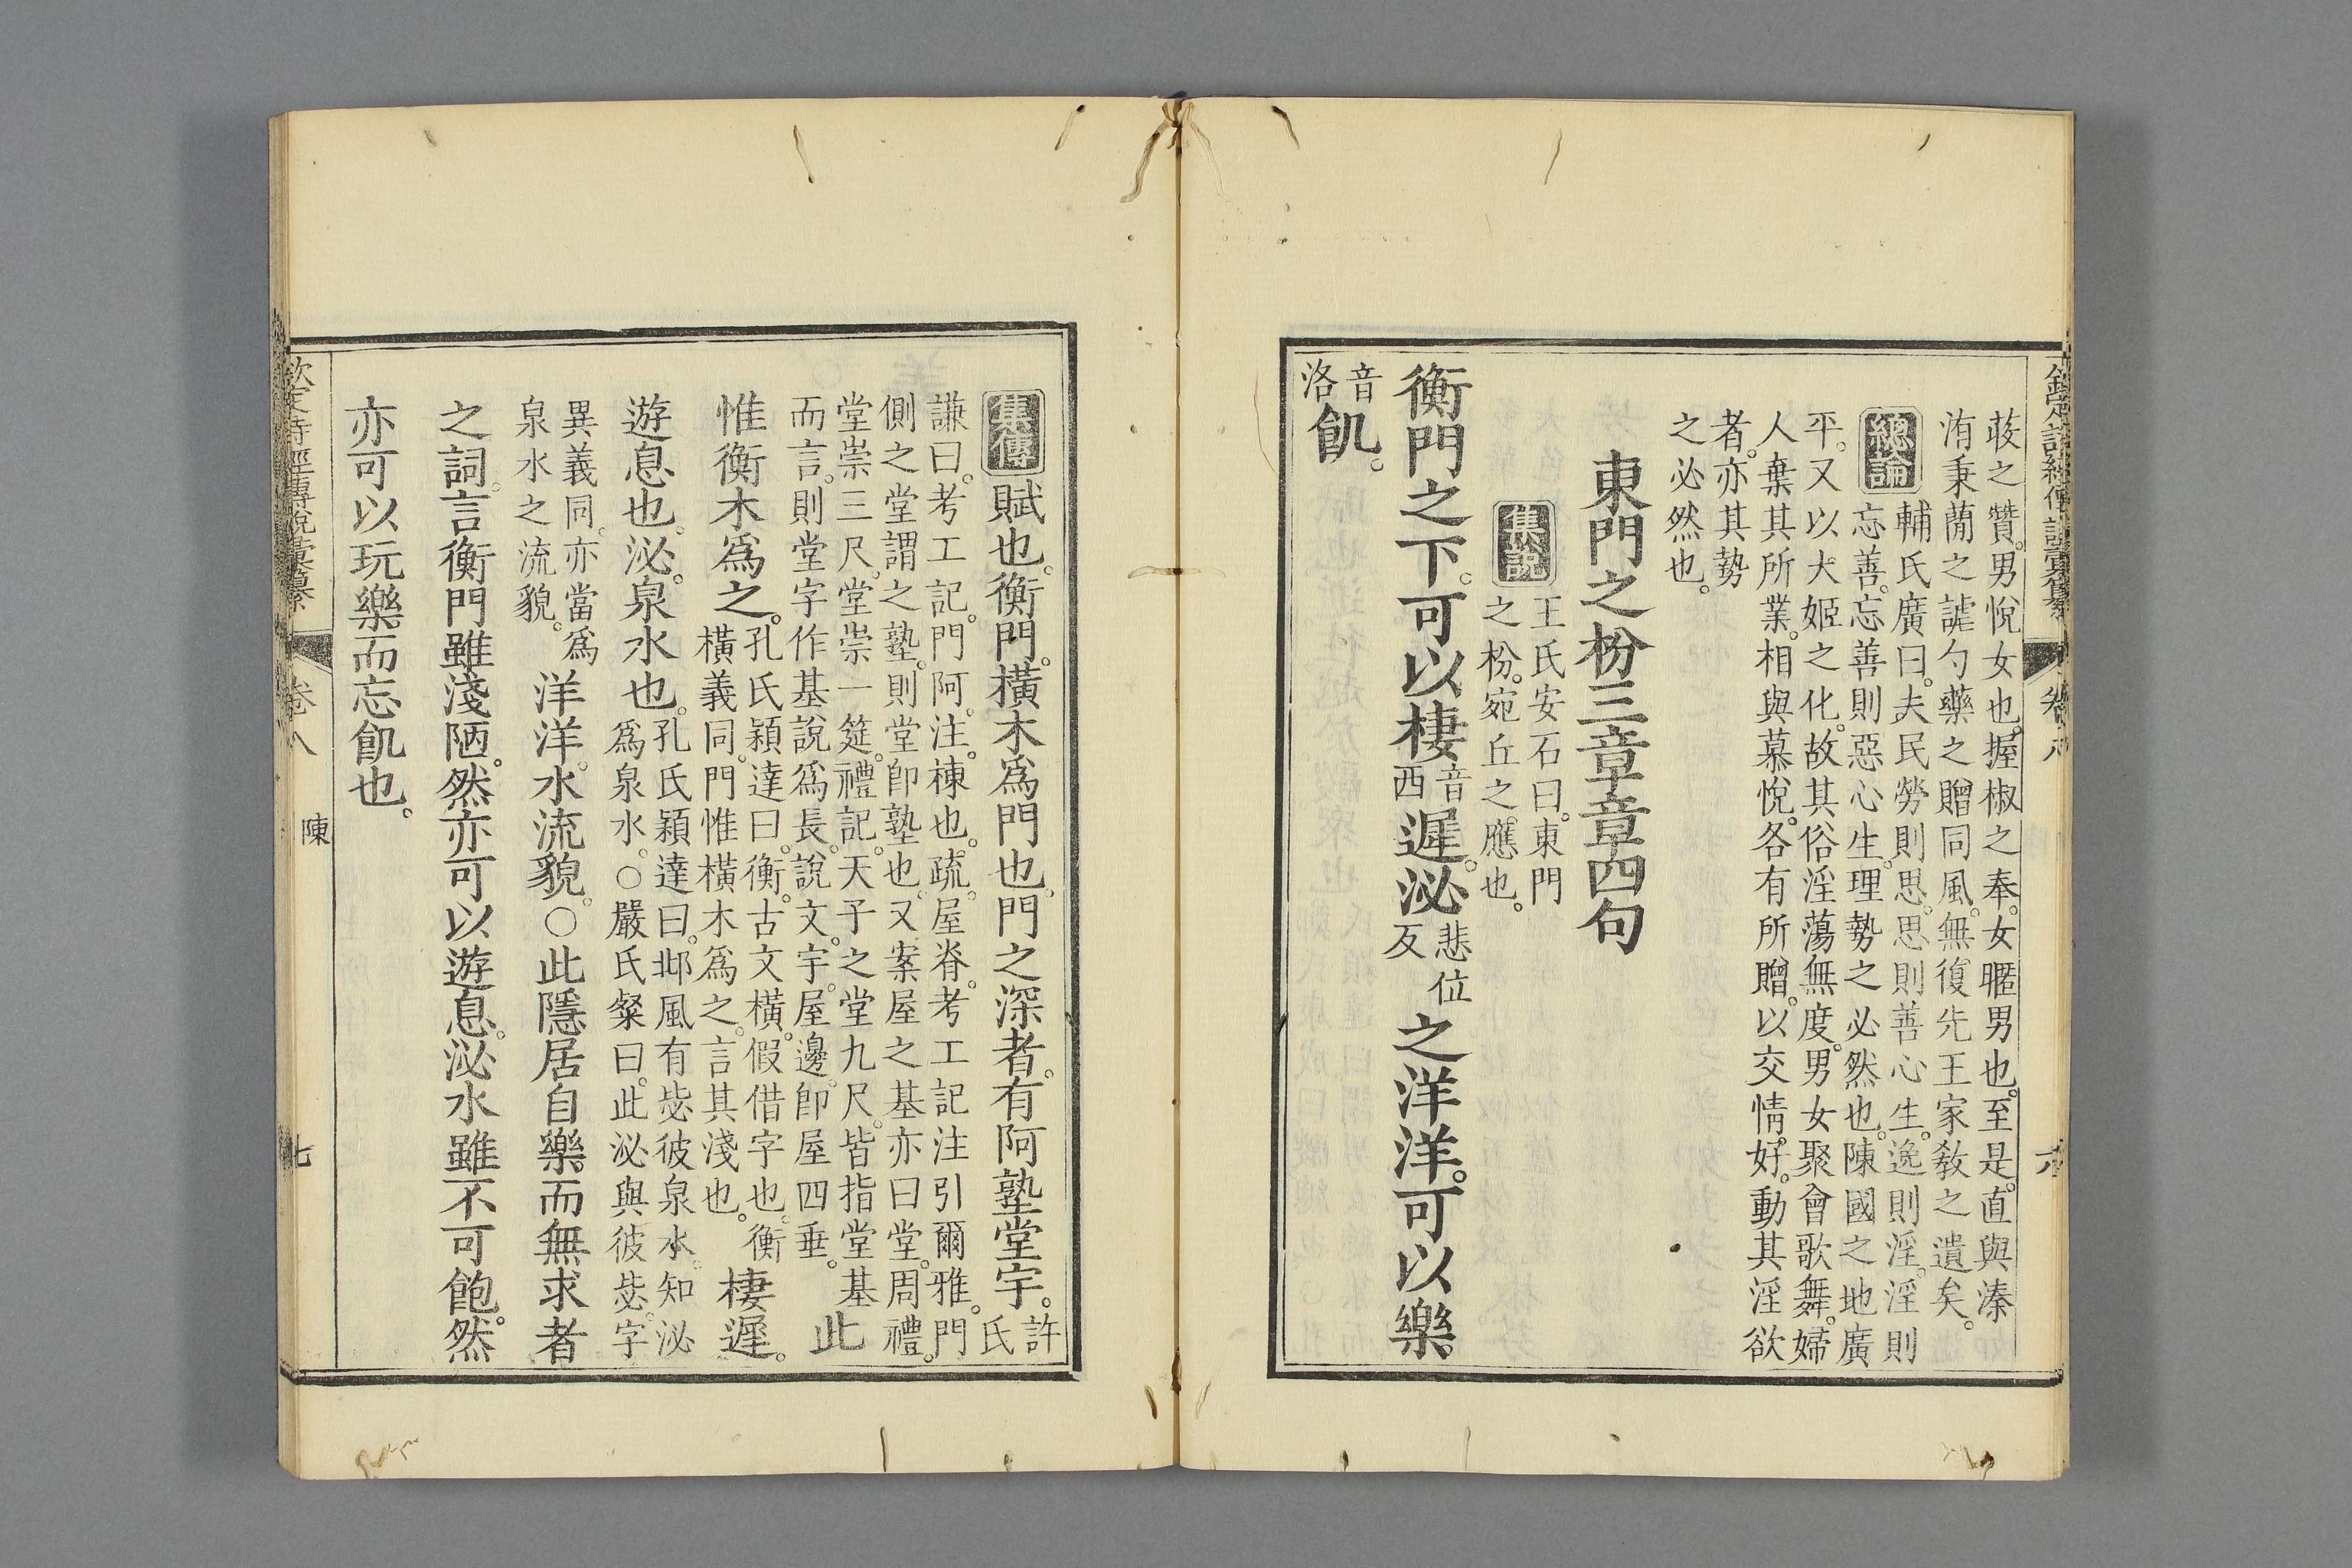 欽定詩經傳說彙纂 卷八 六
荍之贊。男悅女也。握椒之奉。女暱男也。至是。直與溱
洧秉蕑之謔勺藥之贈同風。無復先王家敎之遺矣。
總論
輔氏廣曰。夫民勞則思。思則善心生。逸則淫。淫則
忘善。忘善則惡心生。理勢之必然也。陳國之地廣
平。又以大姬之化。故其俗淫蕩無度。男女聚會歌舞。婦
人棄其所業。相與慕悅。各有所贈。以交情好。動其淫欲
者。亦其勢
之必然也。
東門之枌三章章四句
集說
王氏安石曰。東門
之枌。宛丘之應也。
衡門之下。可以棲音西遲。泌悲位反之洋洋。可以樂
音洛飢。
集傳賦也。衡門。橫木爲門也。門之深者。有阿塾堂宇。許氏
謙曰。考工記。門阿。注。棟也。疏。屋脊。考工記注引爾雅。門
側之堂謂之塾。則堂卽塾也。又案屋之基亦曰堂。周禮。
堂崇三尺。堂崇一筵。禮記。天子之堂九尺。皆指堂基
而言。則堂字作基說爲長。說文。宇。屋邊。卽屋四垂。此
惟衡木爲之。孔氏穎達曰。衡。古文橫。假借字也。衡
橫義同。門惟橫木爲之。言其淺也。棲遲。
遊息也。泌。泉水也。孔氏穎達曰。邶風有毖彼泉水。知泌
爲泉水。○嚴氏粲曰。此泌與彼毖。字
異義同。亦當爲
泉水之流貌。洋洋。水流貌。○此隱居自樂而無求者
之詞。言衡門雖淺陋。然亦可以遊息。泌水雖不可飽。然
亦可以玩樂而忘飢也。
欽定詩經傳說彙纂 卷八 陳 七